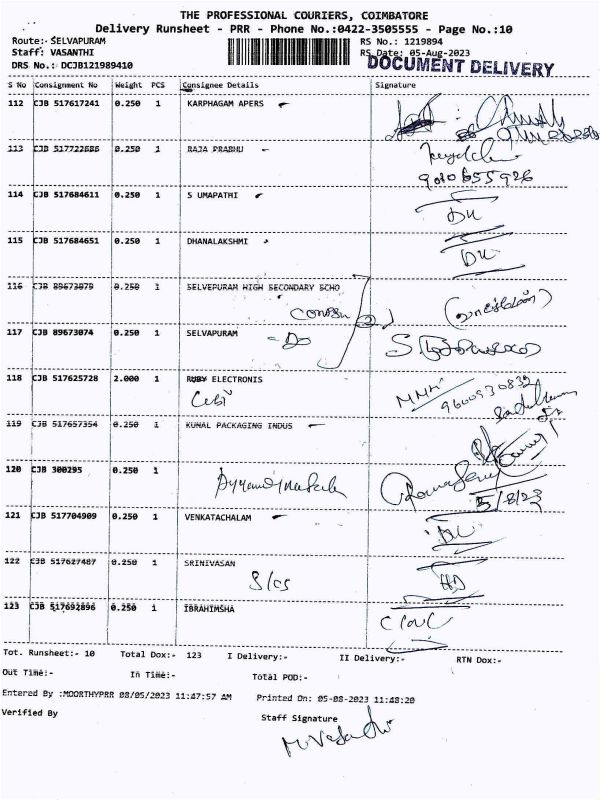 THE PROFESSIONAL COURIERS, COIMBATORE
Delivery Runsheet - PRR - Phone No.:0422-3505555 - Page No.:10
Route:- SELVAPURAM RS No.: 1219894
Staff: VASANTHI RS Date: 05-Aug-2023
DRS No.: DCJB121989410 DOCUMENT DELIVERY
S No Consignment No Weight PCS Consignee Details Signature
112 CJB 517617241 0.250 1 KARPHAGAM APERS
113 CJB 517722686 0.250 1 RAJA PRABHU
9010655926
114 CJB 517684611 0.250 1 S UMAPATHI
DL
115 CJB 517684651 0.250 1 DHANALAKSHMI
DL
116 CJB 89673079 0.250 1 SELVEPURAM HIGH SECONDARY SCHO
117 CJB 89673074 0.250 1 SELVAPURAM
118 CJB 517625728 2.000 1 RUBY ELECTRONIS
9600930832
119 CJB 517657354 0.250 1 KUNAL PACKAGING INDUS
120 CJB 300295 0.250 1
5/8/23
121 CJB 517704909 0.250 1 VENKATACHALAM
DL
122 CJB 517627487 0.250 1 SRINIVASAN
123 CJB 517692896 0.250 1 IBRAHIMSHA
Tot. Runsheet:- 10 Total Dox:- 123 I Delivery:- II Delivery:- RTN Dox:-
Out Time:- In Time:- Total POD:-
Entered By :MOORTHYPRR 08/05/2023 11:47:57 AM Printed On: 05-08-2023 11:48:20
Verified By Staff Signature